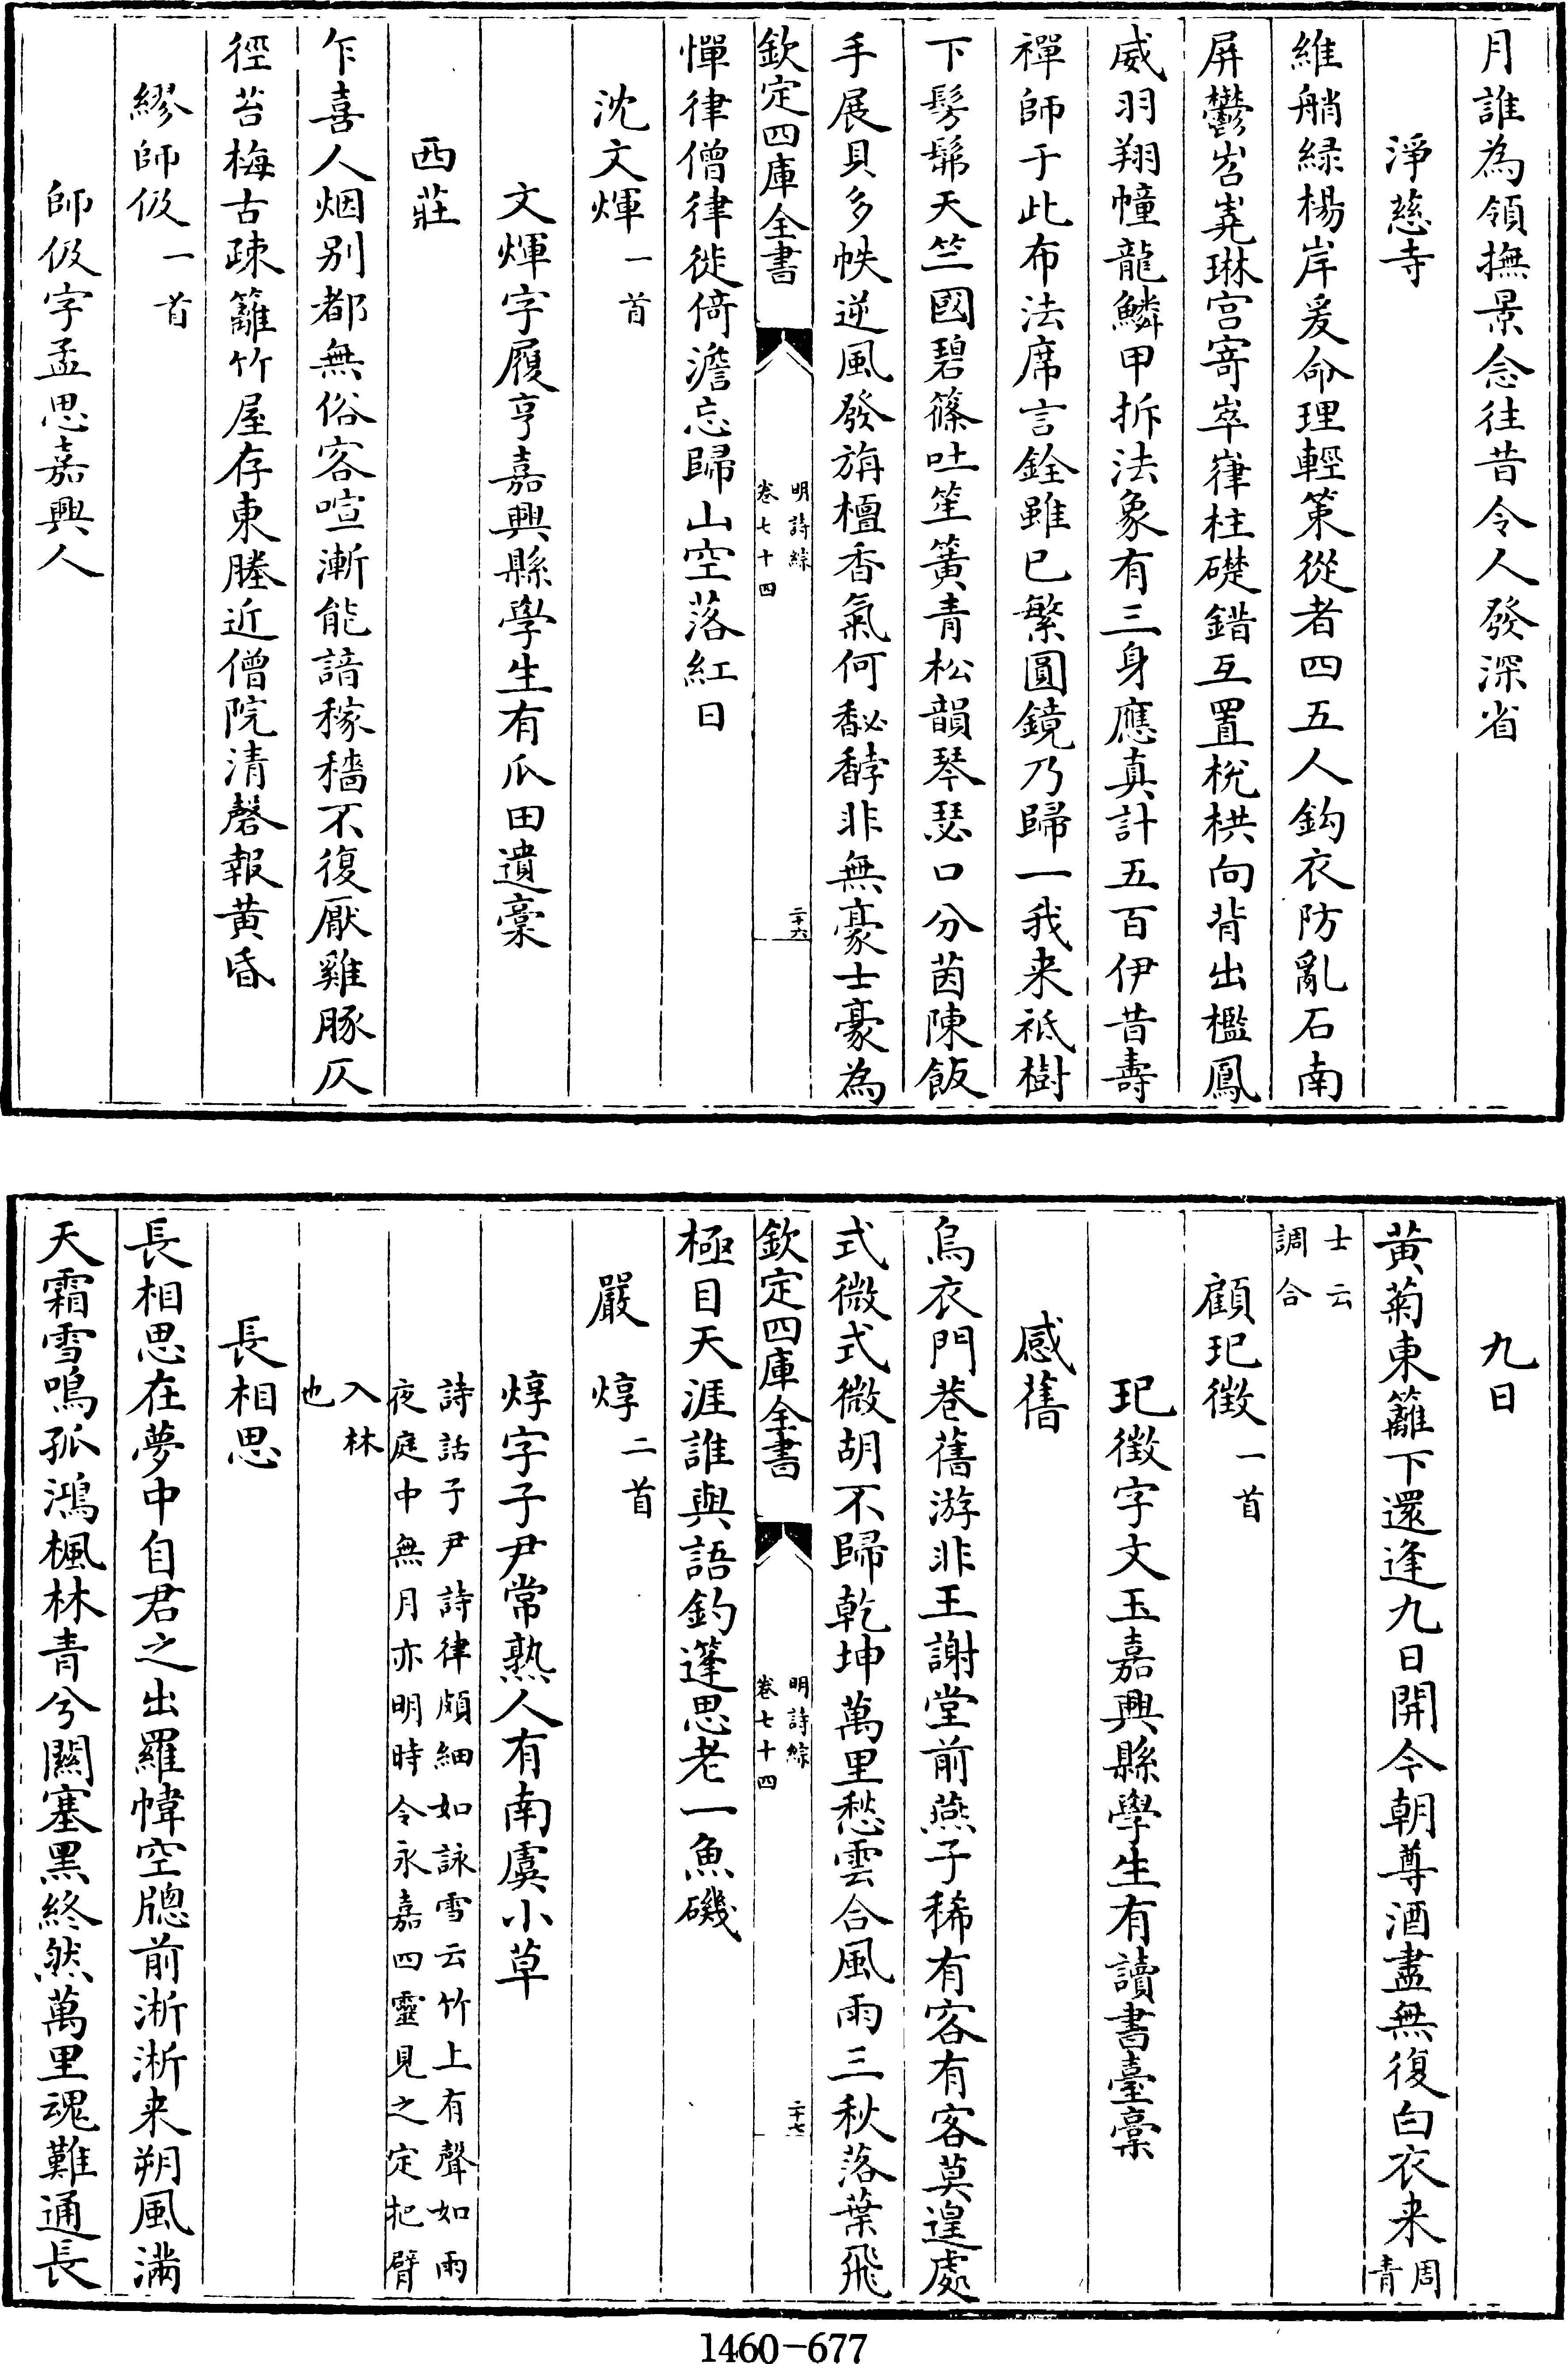 月誰為領撫景念往昔令人發深省
淨慈寺
維艄緑楊岸爰命理輕策從者四五人鈎衣防亂石南
屏鬱岧嶤琳宫寄崒嵂柱礎錯互置棁栱向背出檻鳳
威羽翔幢龍鱗甲拆法象有三身應真計五百伊昔壽
禪師于此布法席言銓雖已繁圓鏡乃歸一我来祗樹
下髣髴天竺國碧篠吐笙簧青松韻琴瑟口分茵陳飯
手展貝多帙逆風發旃檀香氣何馝馞非無豪士豪為
欽定四庫全書
明詩綜
卷七十四
二十六
憚律僧律徙倚澹忘歸山空落紅日
沈文煇一首
文煇字履亨嘉興縣學生有瓜田遺稾
西莊
乍喜人烟别都無俗客喧漸能諳稼穡不復厭雞豚仄
徑苔梅古疎籬竹屋存東塍近僧院清磬報黄昏
繆師伋一首
師伋字孟思嘉興人
九日
黄菊東籬下還逢九日開今朝尊酒盡無復白衣来周青
士云調合
顧玘徴一首
玘徴字文玉嘉興縣學生有讀書臺稾
感舊
烏衣門巷舊游非王謝堂前燕子稀有客有客莫遑處
式微式微胡不歸乾坤萬里愁雲合風雨三秋落葉飛
欽定四庫全書
明詩綜
卷七十四
二十七
極目天涯誰與語釣蓬思老一魚磯
嚴焞二首
焞字子尹常熟人有南虞小草
詩話子尹詩律頗細如詠雪云竹上有聲如雨
夜庭中無月亦明時令永嘉四靈見之定把臂
入林也
長相思
長相思在夢中自君之出羅幃空牕前淅淅来朔風滿
天霜雪鳴孤鴻楓林青兮關塞黑終然萬里魂難通長
1460-677